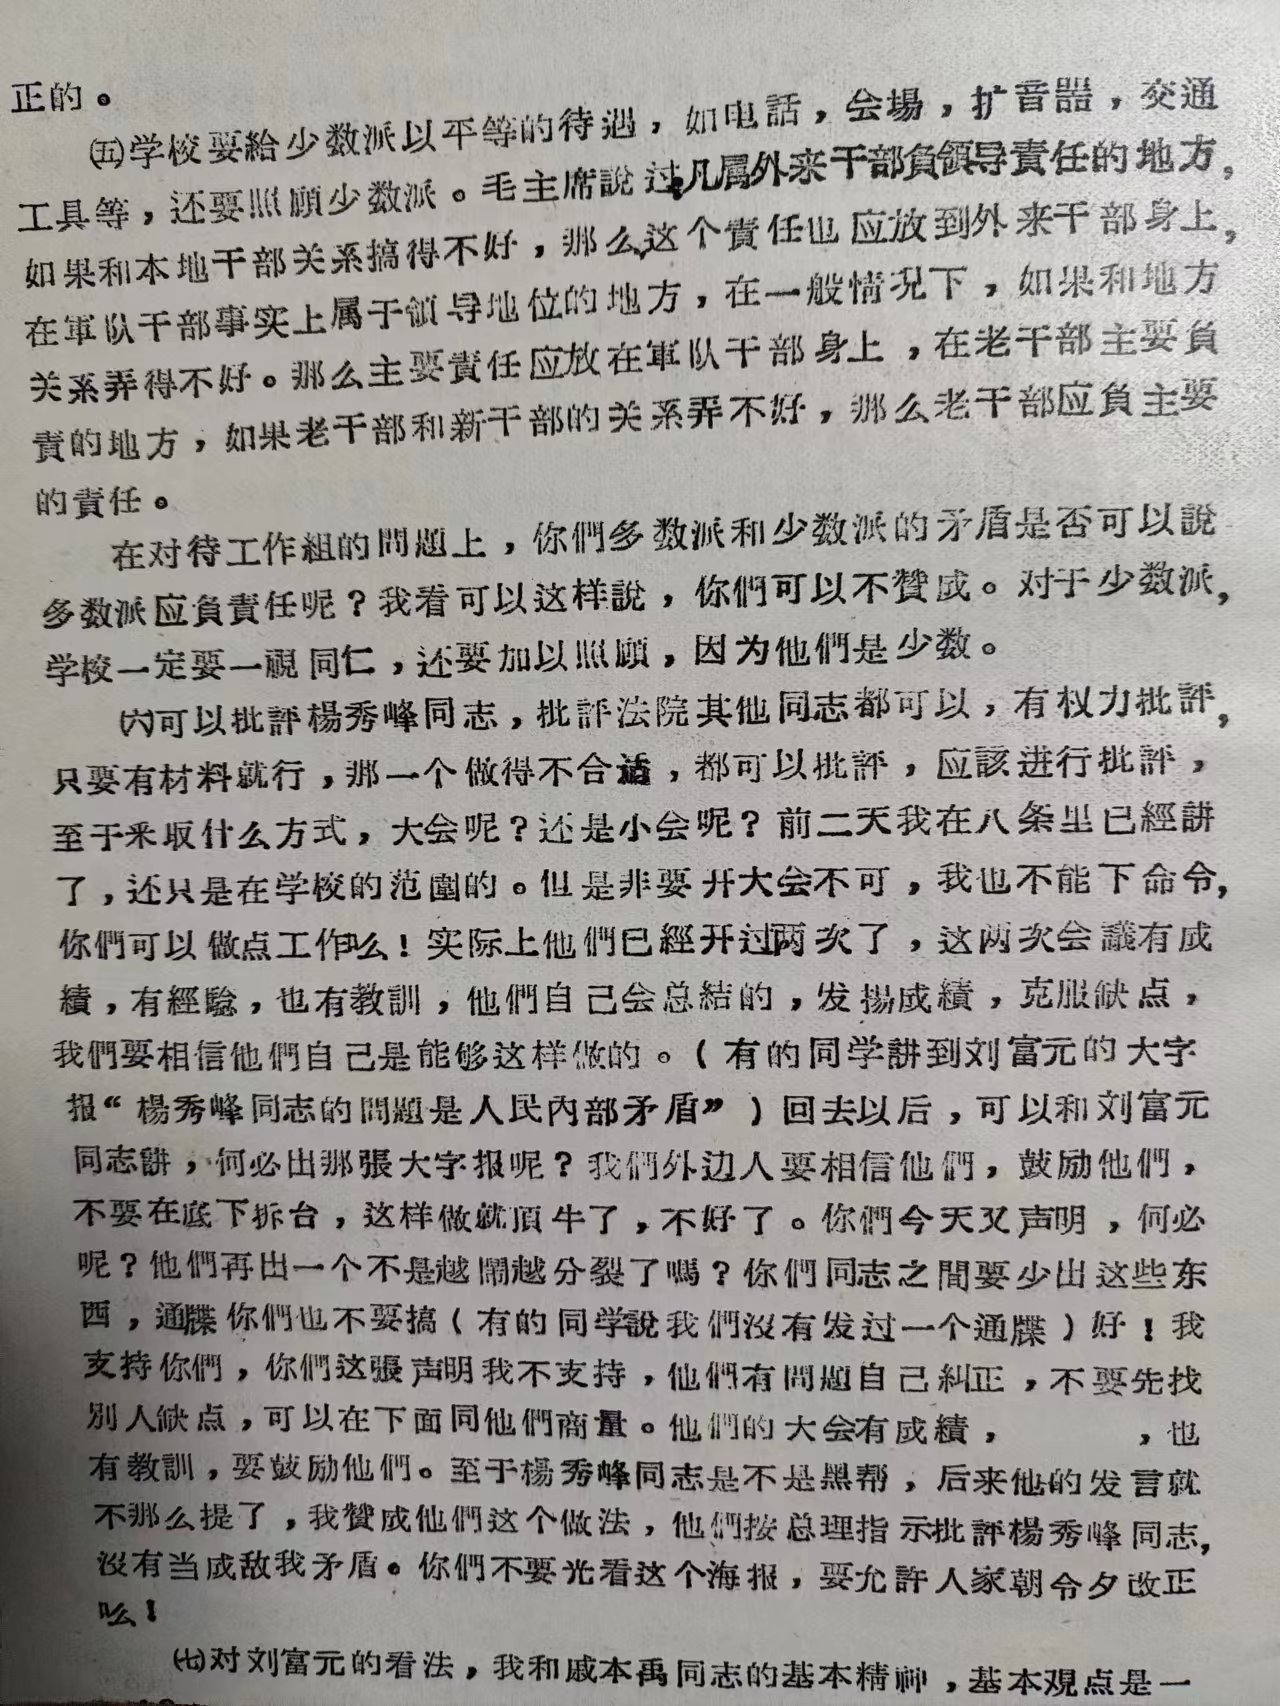 正的。
㈤学校要給少数派以平等的待遇，如电話，会場，扩音器，交通
工具等，还要照顧少数派。毛主席說过凡属外来干部負領导責任的地方，
如果和本地干部关系搞得不好，那么这个責任也应放到外来干部身上，
在軍队干部事实上属于領导地位的地方，在一般情况下，如果和地方
关系弄得不好。那么主要責任应放在軍队干部身上，在老干部主要負
責的地方，如果老干部和新干部的关系弄不好，那么老干部应負主要
的責任。
在对待工作組的問題上，你們多数派和少数派的矛盾是否可以說
多数派应負責任呢？我看可以这样說，你們可以不贊成。对于少数派，
学校一定要一視同仁，还要加以照顧，因为他們是少数。
㈥可以批評楊秀峰同志，批評法院其他同志都可以，有权力批評，
只要有材料就行，那一个做得不合适，都可以批評，应該进行批評，
至于采取什么方式，大会呢？还是小会呢？前二天我在八条里已經講
了，还只是在学校的范圍的。但是非要开大会不可，我也不能下命令，
你們可以做点工作么！实际上他們已經开过两次了，这两次会議有成
績，有經驗，也有教訓，他們自己会总結的，发揚成績，克服缺点，
我們要相信他們自己是能够这样做的。（有的同学講到刘富元的大字
报“楊秀峰同志的問題是人民內部矛盾”）回去以后，可以和刘富元
同志講，何必出那張大字报呢？我們外边人要相信他們，鼓励他們，
不要在底下拆台，这样做就頂牛了，不好了。你們今天又声明，何必
呢？他們再出一个不是越鬧越分裂了嗎？你們同志之間要少出这些东
西，通牒你們也不要搞（有的同学說我們沒有发过一个通牒）好！我
支持你們，你們这張声明我不支持，他們有問題自己糾正，不要先找
别人缺点，可以在下面同他們商量。他們的大会有成績，　　　，也
有教訓，要鼓励他們。至于楊秀峰同志是不是黑帮，后来他的发言就
不那么提了，我贊成他們这个做法，他們按总理指示批評楊秀峰同志，
沒有当成敌我矛盾。你們不要光看这个海报，要允許人家朝令夕改正
么！
㈦对刘富元的看法，我和戚本禹同志的基本精神，基本观点是一